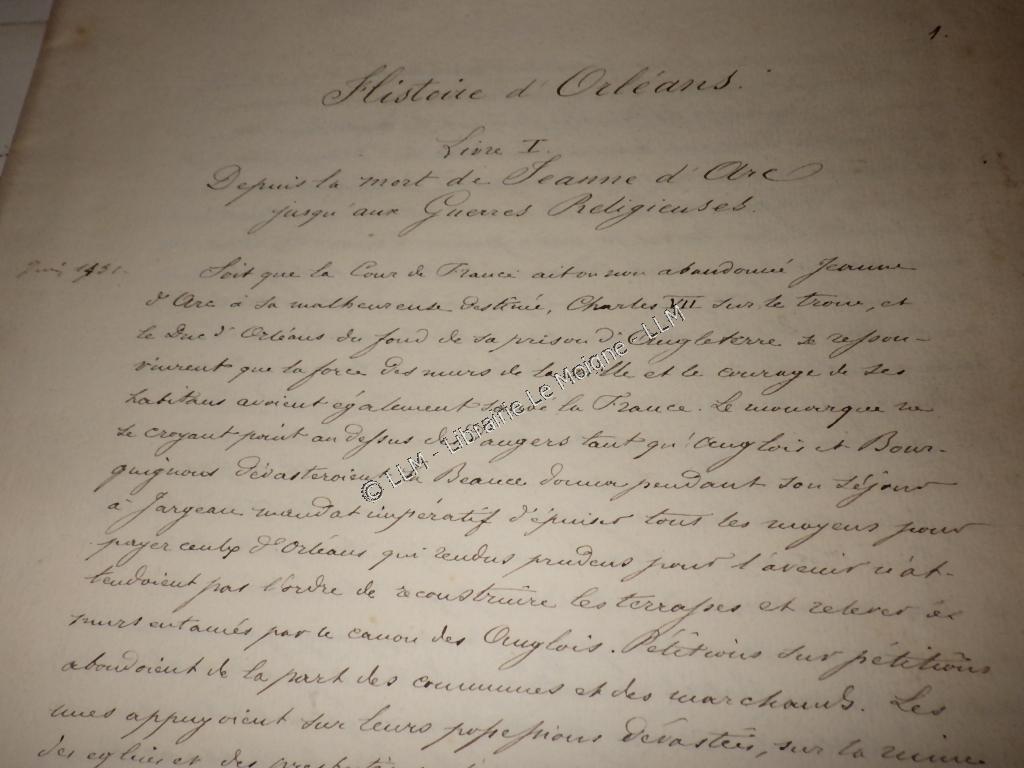 1.
Histoire d'Orléans.
Livre I.
Depuis la mort de Jeanne d'Arc
jusqu'aux Guerres Religieuses.
Juin 1431.
Soit que la Cour de France ait ou non abandonné Jeanne
d'Arc à sa malheureuse destinée, Charles VII sur le trone, et
le Duc d'Orléans du fond de sa prison d'Angleterre se ressou-
vinrent que la force des murs de la ville et le courage de ses
habitans avoient également sauvé la France. Le monarque ne
se croyant point au dessus des dangers tant qu'Anglois et Bour-
guignons dévasteroient la Beauce donna pendant son séjour
à Jargeau mandat impératif d'épuiser tous les moyens pour
payer ceux d'Orléans qui rendus prudens pour l'avenir n'at-
tendoient pas l'ordre de reconstruire les terrasses et relever les
murs entamés par le canon des Anglois. Pétitions sur pétitions
abondoient de la part des communes et des marchands. Les
unes appuyoient sur leurs possessions dévastées, sur la ruine
des eglises et des
© LLM - Librairie Le Moigne - LLM